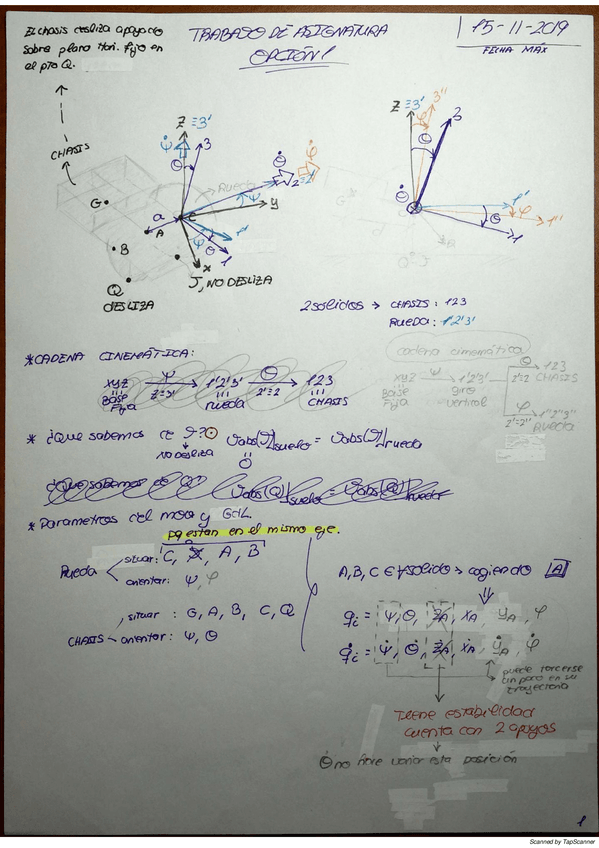 El chasis desliza apoyado
sobre plano Hori. fijo en
el pto Q.
TRABAJO DE ASIGNATURA
OPCIÓN 1
15-11-2019
FECHA MÁX
CHASIS
Z≡3'
3
ψ̇
θ
θ̇
φ̇
Rueda
2≡2'
ψ
y
a
C
A
G
B
Q
DESLIZA
ψ
θ
1'
1
x
J, NO DESLIZA
Z≡3'
3''
φ
θ
3
θ̇
1'
φ
θ
1''
1
2 solidos → CHASIS: 123
RUEDA: 1'2'3'
*CADENA CINEMÁTICA:
xyz ψ 1'2'3' θ 123
Z=3' 2'=2
Base Fija
rueda
CHASIS
cadena cinemática
xyz ψ 1'2'3'
Base Fija
giro vertical
θ 123
2'=2 CHASIS
φ 1''2''3''
2'=2'' RUEDA
* ¿Que sabemos de J?
no desliza
vabs(J)]suelo = vabs(J)]rueda
¿Que sabemos de Q?
* Parametros del mov y GdL.
pq estan en el mismo eje.
Rueda
situar: C, A, B
orientar: ψ, φ
CHASIS
situar: G, A, B, C, Q
orientar: ψ, θ
A, B, C ∈ solido → cogiendo A
qi = ψ, θ, zA, xA, yA, φ
q̇i = ψ̇, θ̇, żA, ẋA, ẏA, φ̇
puede torcerse
un poco en su
trayectoria
Tiene estabilidad
cuenta con 2 apoyos
θ no hace variar esta posición
1
Scanned by TapScanner